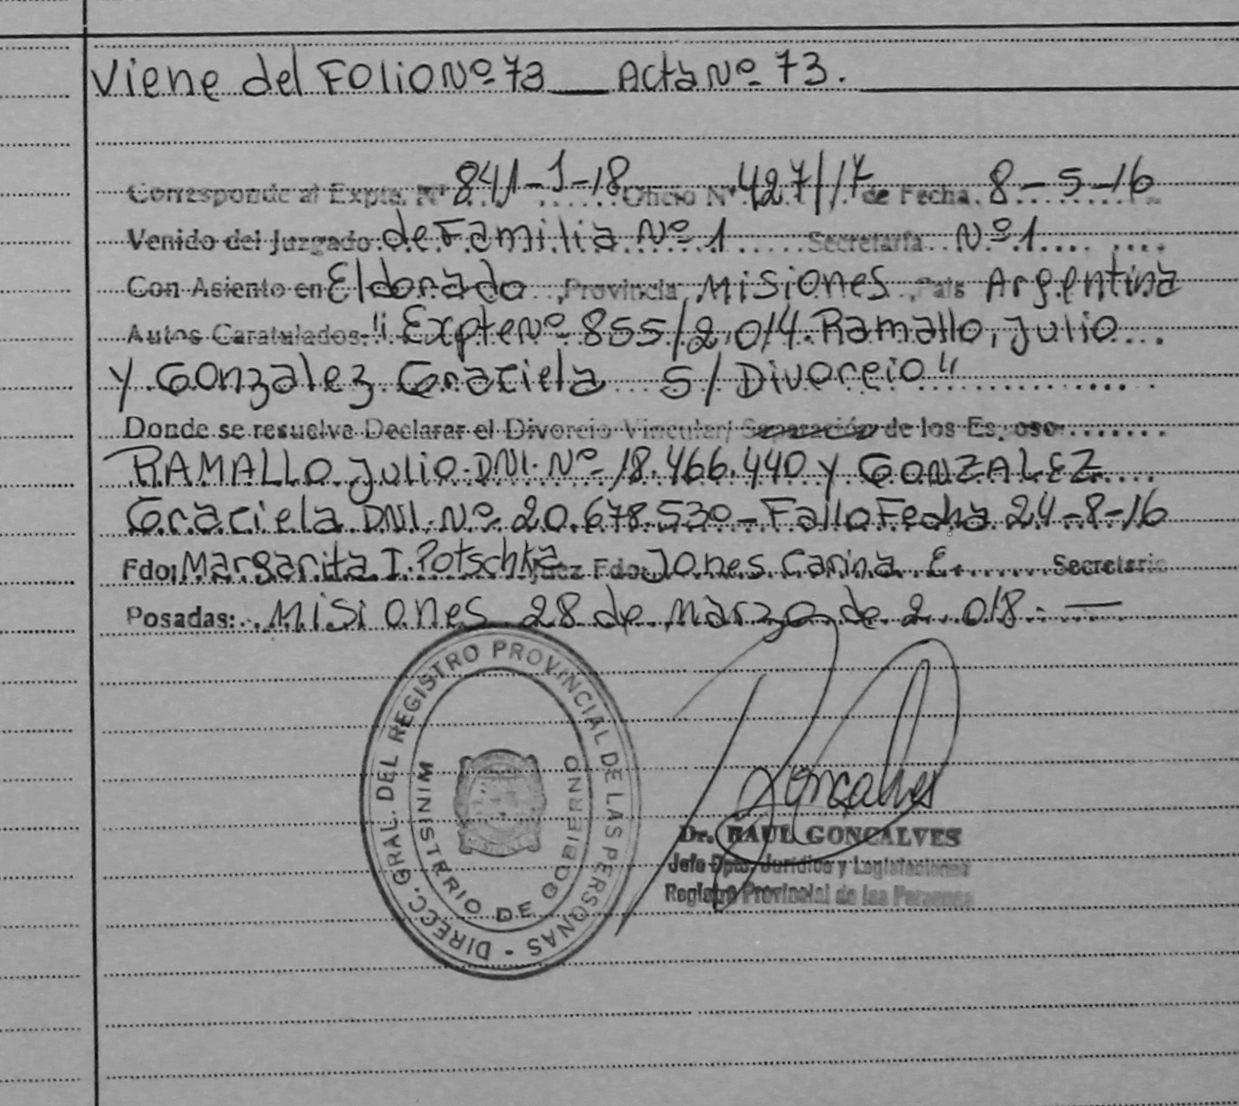 Viene del Folio Nº 73 __ Acta Nº 73.
Corresponde al Expte. Nº 841-J-18 Oficio Nº 427/17 de Fecha 8-5-16
Venido del Juzgado de Familia Nº 1 Secretaría Nº 1
Con Asiento en Eldorado, Provincia Misiones, País Argentina
Autos Caratulados: "Expte Nº 855/2.014. Ramallo, Julio
y Gonzalez Graciela S/ Divorcio"
Donde se resuelva Declarar el Divorcio Vincular/ Separación de los Esposo
RAMALLO Julio. DNI. Nº 18.466.440 y GONZALEZ
Graciela DNI. Nº 20.678.530 - Fallo Fecha 24-8-16
Fdo: Margarita I. Potschka Juez Fdo: Jones Carina E. Secretario
Posadas: Misiones 28 de Marzo de 2.018. —
DIRECC. GRAL. DEL REGISTRO PROVINCIAL DE LAS PERSONAS -
MINISTERIO DE GOBIERNO
MISIONES
Goncalves
Dr. RAUL GONCALVES
Jefe Dpto. Jurídico y Legislaciones
Registro Provincial de las Personas